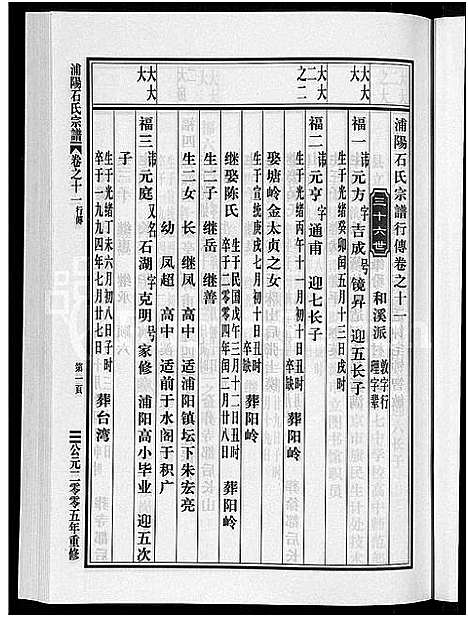 浦陽石氏宗譜行傳卷之十一
三十六世 和溪派 敦字行 理字輩
福一 諱元方 字吉成 号镜昇 迎五长子
生于光绪癸卯闰五月十三日戌时 卒缺 葬阳岭
福二 諱元亨 字通甫 迎七长子
生于光绪丙午十一月初十日丑时 卒缺 葬阳岭
娶塘岭金太贞之女
生于宣统庚戌七月初十日丑时 卒缺 葬阳岭
继娶陈氏 生于民国戊午三月十二日丑时 卒于二〇〇四年闰二月廿八日 葬阳岭
生二子 继岳 继善
生二女 长 继凤 高中 适浦阳镇坛下朱宏亮
幼 凤超 高中 适前于水阁于积广
福三 諱元庭 又名石湖 字克明 号家修 浦阳高小毕业 迎五次
子 生于光绪丁未六月初八日子时 卒于一九九四年七月廿七日 葬台湾
大大
二大
之二
大大
大大
浦陽石氏宗譜 卷之十一 行傳
第一頁
公元二零零五年重修